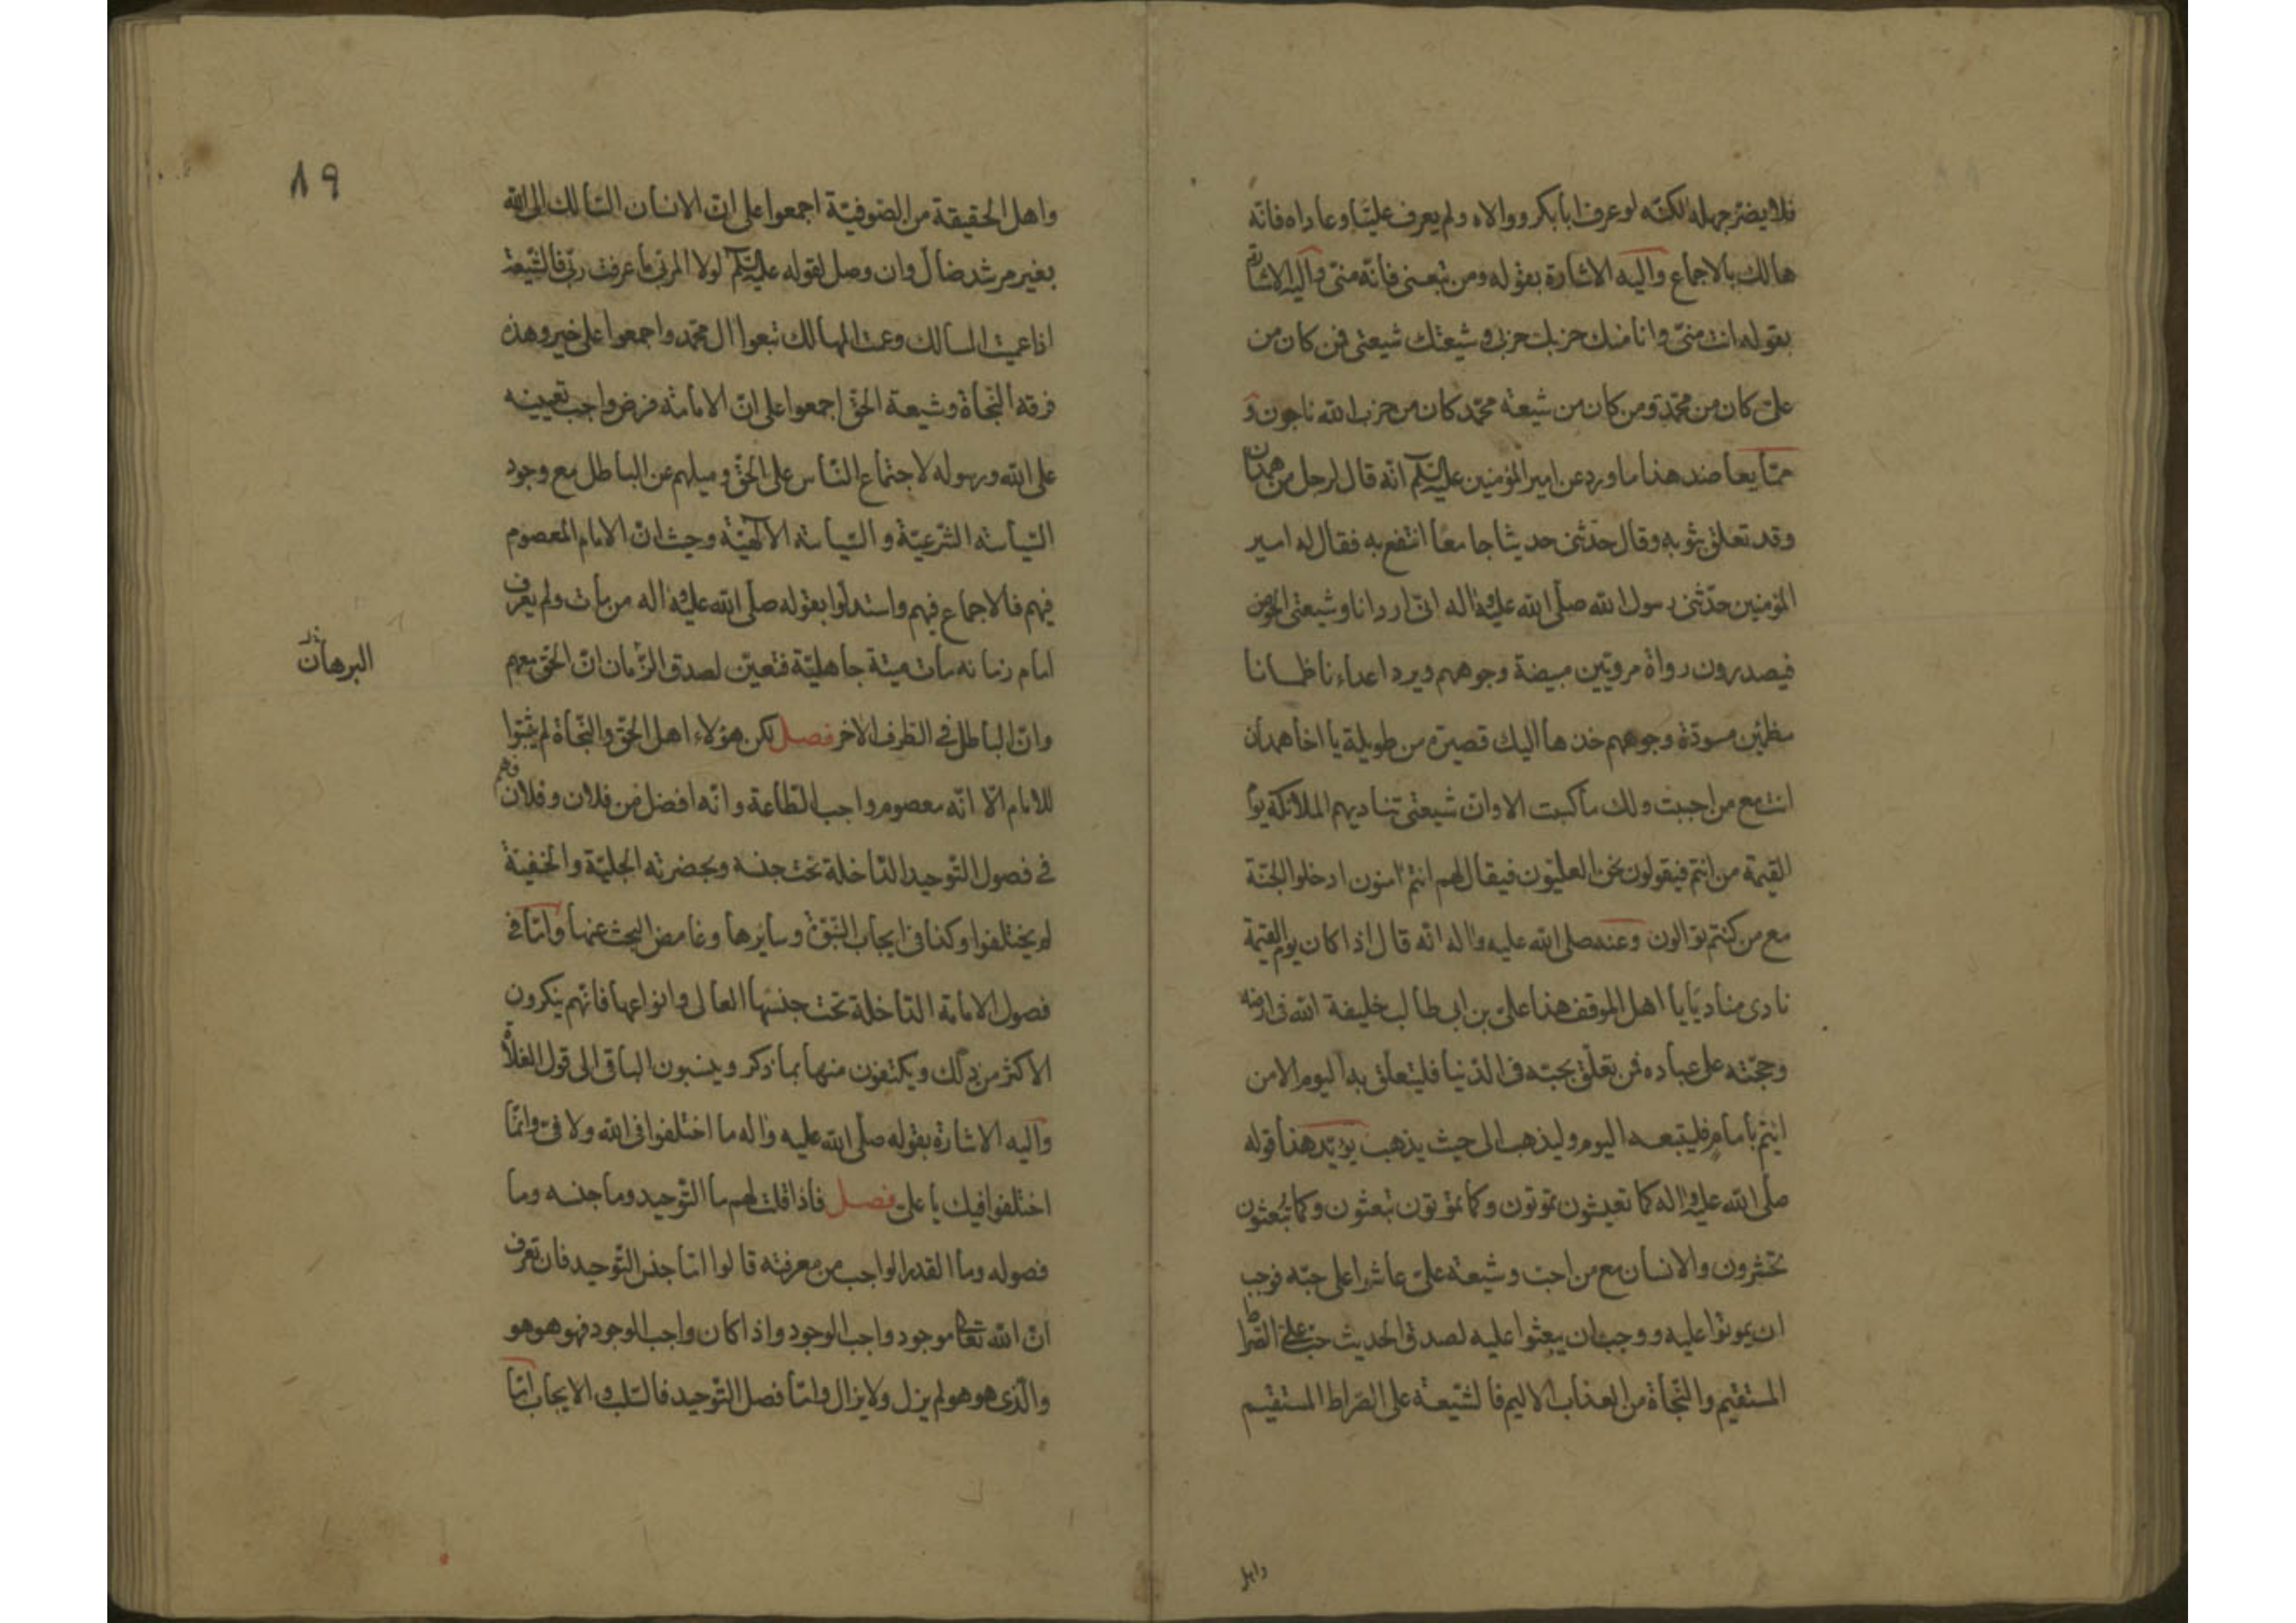 فلا يضر جهله لكنه لو عرف ابا بكر ووالاه ولم يعرف عليّا وعاداه فانّه
هالك بالاجماع واليه الاشارة بقوله ومن تبعنى فانّه منّى واليه الاشارة
بقوله انت منّى وانا منك حزبك حزبى وشيعتك شيعتى فمن كان من
علىّ كان من محمّد ومن كان من شيعة محمّد كان من حزب الله ناجون و
ممّا يعاضد هذا ما ورد عن امير المؤمنين عليه السّلم انّه قال لرجل من همدان
وقد تعلق بثوبه وقال حدّثنى حديثا جامعا انتفع به فقال له امير
المؤمنين حدّثنى رسول الله صلّى الله عليه واله انّى ارد انا وشيعتى الحوض
فيصدرون رواة مرويّين مبيضة وجوههم ويرد اعداءنا ظمانا
مظمئين مسودّة وجوههم خذها اليك قصيرة من طويلة يا اخا همدان
انت مع من احببت ولك ما كسبت الا وان شيعتى تناديهم الملائكة يوم
القيمة من انتم فيقولون نحن العليّون فيقال لهم انتم امنون ادخلوا الجنّة
مع من كنتم توالون وعنه صلى الله عليه واله انّه قال اذا كان يوم القيمة
نادى مناد يا يا اهل الموقف هذا علىّ بن ابى طالب خليفة الله فى ارضه
وحجّته على عباده فمن تعلّق بحبّه فى الدّنيا فليتعلّق به اليوم الا من
ائتم بامام فليتبعه اليوم وليذهب الى حيث يذهب يؤيّد هذا قوله
صلّى الله عليه واله كما تعيشون تموتون وكما تموتون تبعثون وكما تبعثون
تحشرون والانسان مع من احبّ وشيعة علىّ عاشوا على حبّه فوجب
ان يموتوا عليه ووجب ان يبعثوا عليه لصدق الحديث حبّ علىّ الصّراط
المستقيم والنّجاة من العذاب الاليم فالشّيعة على الصّراط المستقيم
واهل
١٩
واهل الحقيقة من الصّوفيّة اجمعوا على انّ الانسان السّالك الى الله
بغير مرشد ضالّ وان وصل لقوله عليه السّلم لولا المربّى ما عرفت ربّى فالشّيعة
اذا عميت المسالك وعمت المهالك تبعوا ال محمّد واجمعوا على خير وهذه
فرقه النّجاة وشيعة الحقّ اجمعوا على انّ الامامة فرض واجب تعيينه
على الله ورسوله لاجتماع النّاس على الحقّ وميلهم عن الباطل مع وجود
السّياسة الشّرعيّة والسّياسة الالهيّة وحيث انّ الامام المعصوم
فيهم فالاجماع فيهم واستدلّوا بقوله صلّى الله عليه واله من مات ولم يعرف
امام زمانه مات ميتة جاهليّة فتعيّن لصدق الزّمان انّ الحقّ معهم
البرهان
وانّ الباطل فى الطّرف الاخر فصل لكن هؤلاء اهل الحقّ والنّجاة لم يثبتوا
للامام الّا انّه معصوم واجب الطّاعة وانّه افضل من فلان وفلان فهم
فى فصول التّوحيد الدّاخلة تحت جنسه وبحضرته الجليّة والخفيّة
لم يختلفوا وكذا فى ايجاب النّبوّة وسايرها وغامض البحث عنها وامّا فى
فصول الامامة الدّاخلة تحت جنسها العالى وانواعها فانّهم ينكرون
الاكثر من ذلك ويكتفون منها بما ذكر وينسبون الباقى الى قول الغلاة
واليه الاشارة بقوله صلّى الله عليه واله ما اختلفوا فى الله ولا فىّ وانّما
اختلفوا فيك يا علىّ فصل فاذا قلت لهم ما التّوحيد وما جنسه وما
فصوله وما القدر الواجب من معرفته قالوا امّا جنس التّوحيد فان تعرف
انّ الله تعالى موجود واجب الوجود واذا كان واجب الوجود فهو هو هو
والّذى هو هو لم يزل ولا يزال وامّا فصل التّوحيد فالسّلب والايجاب امّا